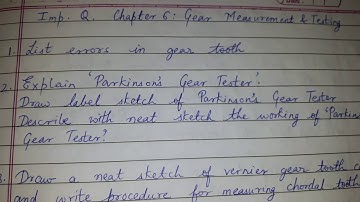 Imp. Q. Chapter 6: Gear Measurement & Testing
1. List errors in gear tooth
2. Explain 'Parkinson's Gear Tester'.
Draw label sketch of Parkinson's Gear Tester
Describe with neat sketch the working of 'Parkin
Gear Tester?
3. Draw a neat sketch of vernier gear tooth c
and write procedure for measuring chordal tooth